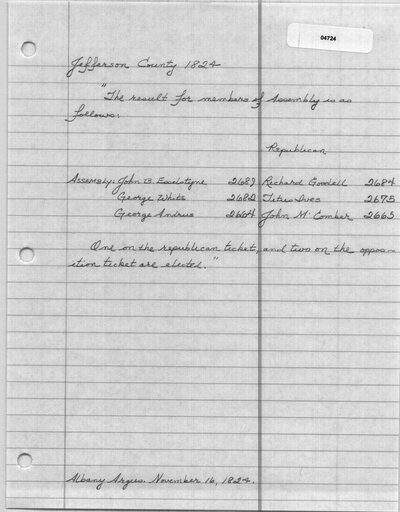 04724
Jefferson County 1824
"The result for members of Assembly is as
follows:
Republican
Assembly: John B. Esselstyne 2689 Richard Goodell 2684
George White 2682 Titus Ives 2675
George Andrus 2664 John McComber 2665
One on the republican ticket, and two on the oppos-
ition ticket are elected."
Albany Argus. November 16, 1824.